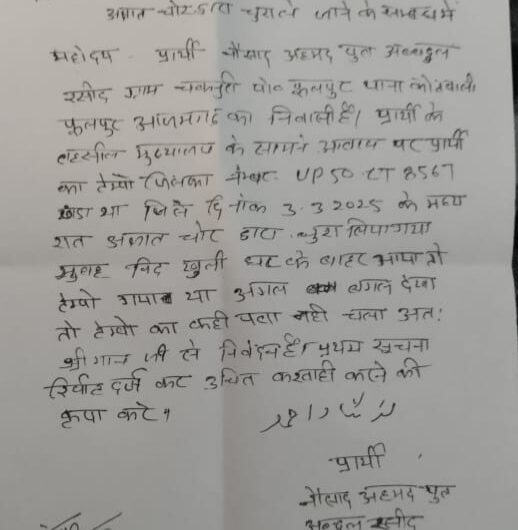 अज्ञात चोर द्वारा चुराले जाने के सम्बन्ध में
महोदय प्रार्थी नौसाद अहमद पुत्र अब्दुल
रसीद ग्राम पो० फूलपुर थाना कोतवाली
फूलपुर आजमगढ़ का निवासी है। प्रार्थी के
तहसील मुख्यालय के सामने आवास पर प्रार्थी
का टेम्पो जिसका नम्बर UP50 CT 8567
खडा था जिसे दिनांक 3.3.2025 के मध्य
रात अज्ञात चोर द्वारा चुरा लिया गया
सुबह निद खुली घर के बाहर आया तो
टेम्पो गायब था अगल बगल देखा
तो टेम्पो का कही पता नही चला अतः
श्रीमान जी से निवेदन है। प्रथम सूचना
रिर्पोट दर्ज कर उचित करने की
कृपा करे।
प्रार्थी
नौसाद अहमद पुत्र
अब्दुल रसीद